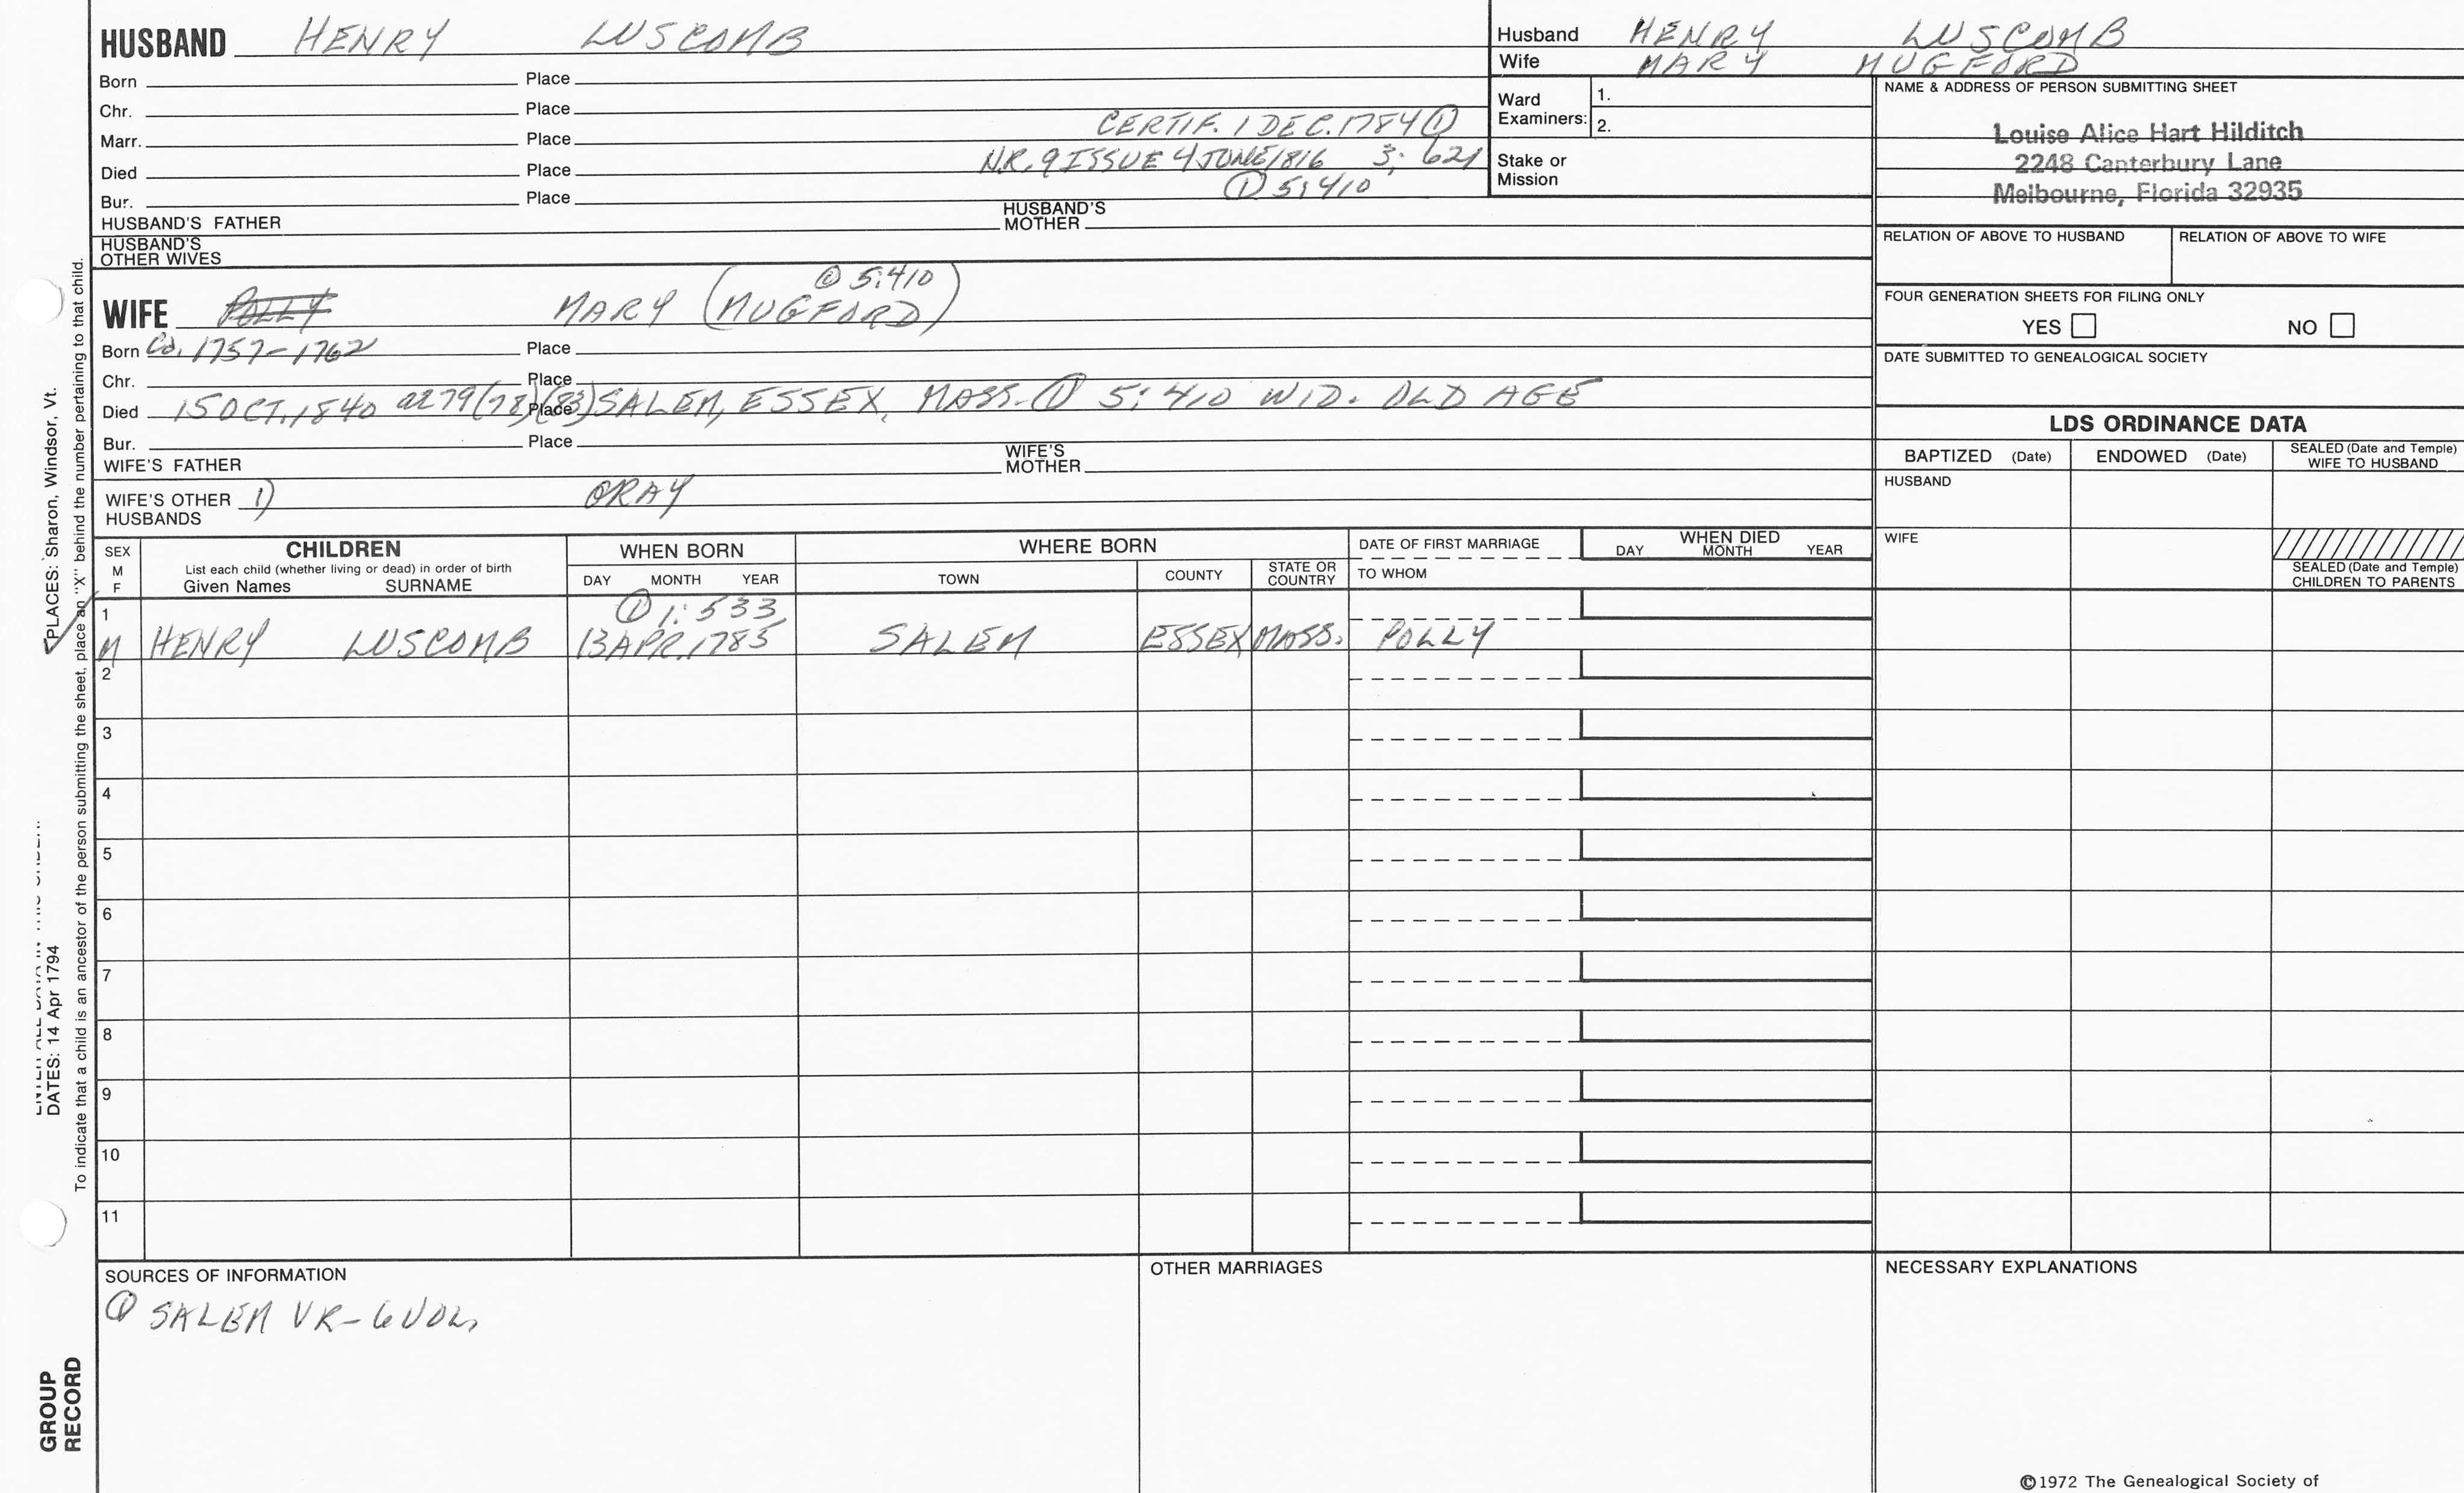 HUSBAND HENRY LUSCOMB
Born Place
Chr. Place
Marr. Place CERTIF. 1 DEC. 1784 ①
Died Place N.R. 9 ISSUE 4 JUNE 1816 3: 621
Bur. Place ① 5:410
HUSBAND'S FATHER HUSBAND'S MOTHER
HUSBAND'S OTHER WIVES
① 5:410
WIFE POLLY MARY (MUGFORD)
Born Ca. 1757-1762 Place
Chr. Place
Died 15 OCT. 1840 a279(78)(83) Place SALEM, ESSEX, MASS. ① 5:410 WID. OLD AGE
Bur. Place
WIFE'S FATHER WIFE'S MOTHER
WIFE'S OTHER HUSBANDS 1) GRAY
Husband HENRY LUSCOMB
Wife MARY MUGFORD
Ward Examiners: 1.
2.
Stake or Mission
NAME & ADDRESS OF PERSON SUBMITTING SHEET
Louise Alice Hart Hilditch
2248 Canterbury Lane
Melbourne, Florida 32935
RELATION OF ABOVE TO HUSBAND RELATION OF ABOVE TO WIFE
FOUR GENERATION SHEETS FOR FILING ONLY
YES NO
DATE SUBMITTED TO GENEALOGICAL SOCIETY
LDS ORDINANCE DATA
BAPTIZED (Date) ENDOWED (Date) SEALED (Date and Temple) WIFE TO HUSBAND
HUSBAND
WIFE
SEALED (Date and Temple) CHILDREN TO PARENTS
SEX M F
CHILDREN
List each child (whether living or dead) in order of birth
Given Names SURNAME
WHEN BORN
DAY MONTH YEAR
WHERE BORN
TOWN COUNTY STATE OR COUNTRY
DATE OF FIRST MARRIAGE
TO WHOM
WHEN DIED
DAY MONTH YEAR
1 ① 1:533
M HENRY LUSCOMB 13 APR. 1785 SALEM ESSEX MASS. POLLY
2
3
4
5
6
7
8
9
10
11
SOURCES OF INFORMATION
① SALEM VR-6 VOL,
OTHER MARRIAGES
NECESSARY EXPLANATIONS
©1972 The Genealogical Society of
PLACES: Sharon, Windsor, Vt.
DATES: 14 Apr 1794
To indicate that a child is an ancestor of the person submitting the sheet, place an "X" behind the number pertaining to that child.
GROUP
RECORD